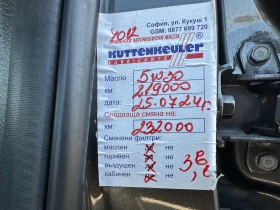 София, ул. Кукуш 1
GSM: 0877 699 720
АВТОМОБИЛНИ МАСЛА
KUTTENKEULER
LUBRICANTS
Масло 5W30
км: 219000
дата: 25.07.24г.
Следваща смяна на:
км: 232000
Сменени филтри:
маслен x не
горивен x не
въздушен x не
кабинен x не